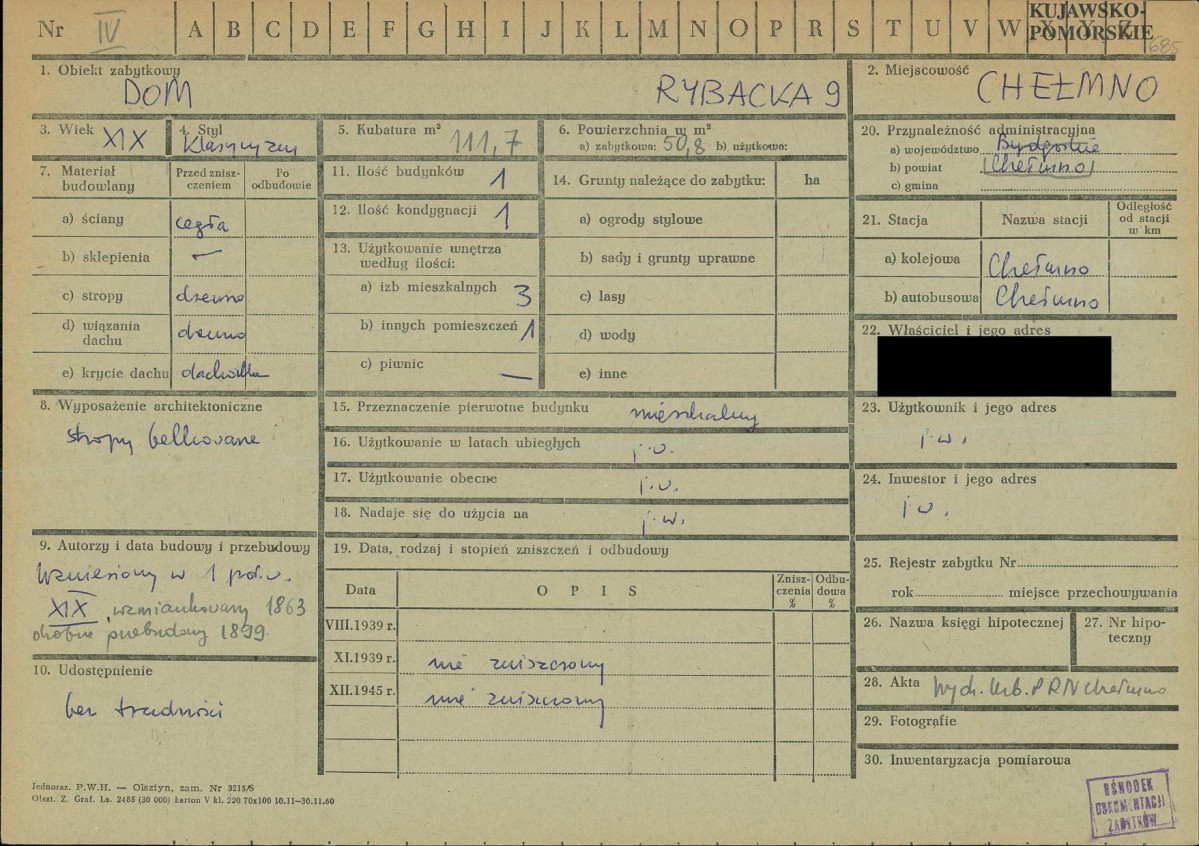 Nr IV A B C D E F G H I J K L M N O P R S T U V W X Y Z KUJAWSKO-POMORSKIE 685
1. Obiekt zabytkowy
DOM RYBACKA 9
2. Miejscowość
CHEŁMNO
3. Wiek XIX
4. Styl
Klasycyzm
5. Kubatura m³
111,7
6. Powierzchnia w m²
a) zabytkowa: 50,8 b) użytkowa:
7. Materiał budowlany
Przed zniszczeniem
Po odbudowie
a) ściany cegła
b) sklepienia —
c) stropy drewno
d) wiązania dachu drewno
e) krycie dachu dachówka
8. Wyposażenie architektoniczne
stropy belkowane
9. Autorzy i data budowy i przebudowy
Wzniesiony w 1 poł. w.
XIX, wzmiankowany 1863
drobne przebudowy 1899.
10. Udostępnienie
bez trudności
11. Ilość budynków 1
12. Ilość kondygnacji 1
13. Użytkowanie wnętrza według ilości:
a) izb mieszkalnych 3
b) innych pomieszczeń 1
c) piwnic —
14. Grunty należące do zabytku: ha
a) ogrody stylowe
b) sady i grunty uprawne
c) lasy
d) wody
e) inne
15. Przeznaczenie pierwotne budynku mieszkalny
16. Użytkowanie w latach ubiegłych j.w.
17. Użytkowanie obecne j.w.
18. Nadaje się do użycia na j.w.
19. Data, rodzaj i stopień zniszczeń i odbudowy
Data O P I S Zniszczenia % Odbudowa %
VIII.1939 r.
XI.1939 r. nie zniszczony
XII.1945 r. nie zniszczony
20. Przynależność administracyjna
a) województwo Bydgoskie
b) powiat (Chełmno)
c) gmina
21. Stacja Nazwa stacji Odległość od stacji w km
a) kolejowa Chełmno
b) autobusowa Chełmno
22. Właściciel i jego adres
23. Użytkownik i jego adres
j.w.
24. Inwestor i jego adres
j.w.
25. Rejestr zabytku Nr
rok miejsce przechowywania
26. Nazwa księgi hipotecznej
27. Nr hipoteczny
28. Akta Wydz. Urb. PRN Chełmno
29. Fotografie
30. Inwentaryzacja pomiarowa
Jednoraz. P.W.H. — Olsztyn, zam. Nr 3215/S
Olszt. Z. Graf. Lz. 2485 (30 000) karton V kl. 220 70x100 10.11—30.11.60
OŚRODEK
DOKUMENTACJI
ZABYTKÓW